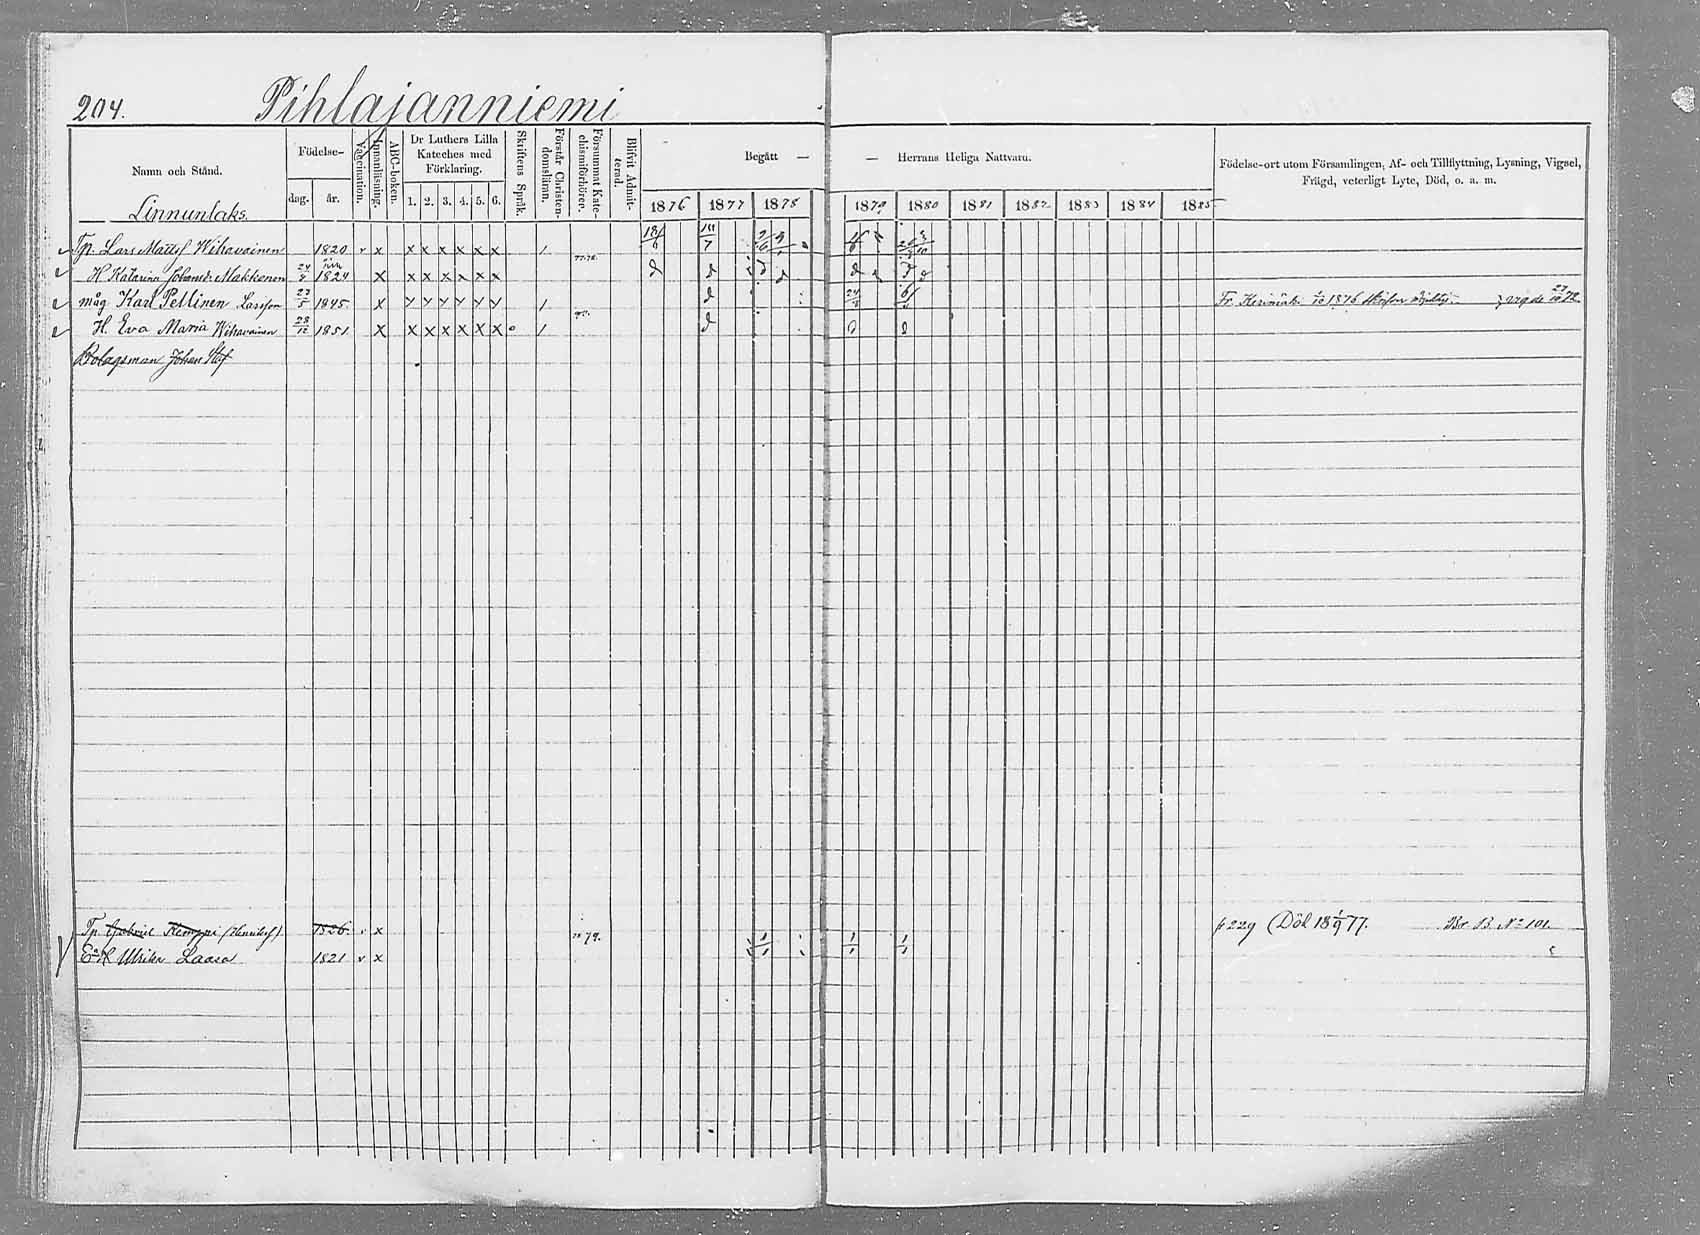 204. Pihlajanniemi
Namn och Stånd.
Födelse-
dag. år.
Vaccination.
Innanläsning.
ABC-boken.
Dr Luthers Lilla
Kateches med
Förklaring.
1. 2. 3. 4. 5. 6.
Skriftens Språk.
Förstår Christen-
domsläran.
Försummat Kate-
chismiförhörer.
Blifvit Admit-
terad.
Begått — — Herrans Heliga Nattvard.
1876 1877 1878 1879 1880 1881 1882 1883 1884 1885
Födelse-ort utom Församlingen, Af- och Tillflyttning, Lysning, Vigsel,
Frägd, veterligt Lyte, Död, o. a. m.
Linnunlaks.
Tp. Lars Mattss Wihavainen 1820 v x x x x x x x 1
H Katarina Johansdr Makkonen 24/4 1824 x x x x x x x
måg Karl Pellinen Larsson 23/5 1845 x 1 Fr. Kerimäki 1876
H. Eva Maria Wihavainen 23/12 1851. x x x x x x x 0 1
Bolagsman Johan
Tp. Gabriel Kemppi (Henriksf) 1826. v x 79. p 229 (Död 18 1/9 77. Br. B. No 101.
E.H Ulrika Laasa 1821 v x 1/1 1/1 1/1